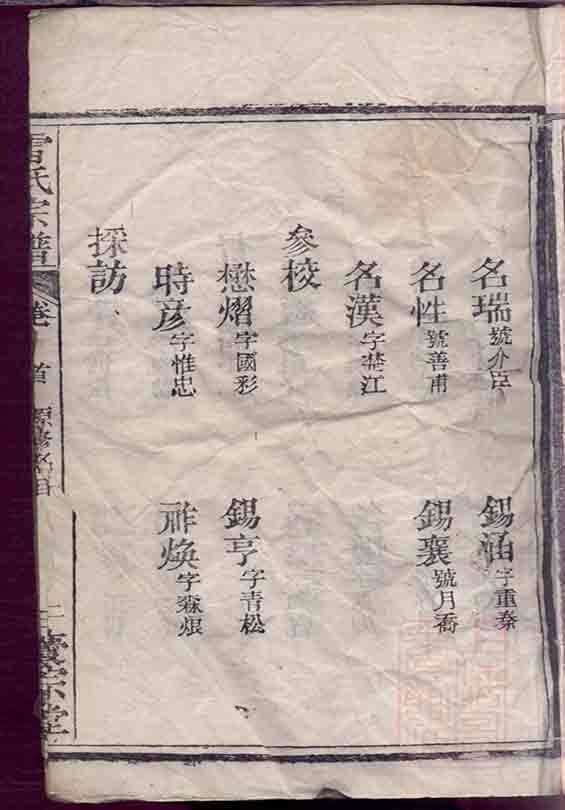 名瑞 號介臣
錫涵 字重泰
名性 號善甫
錫襄 號月喬
名漢 字楚江
參校
懋熠 字國彩
錫亨 字青松
時彦 字惟忠
祚煥 字霖烺
採訪
雷氏宗譜 卷首 原修名目 二